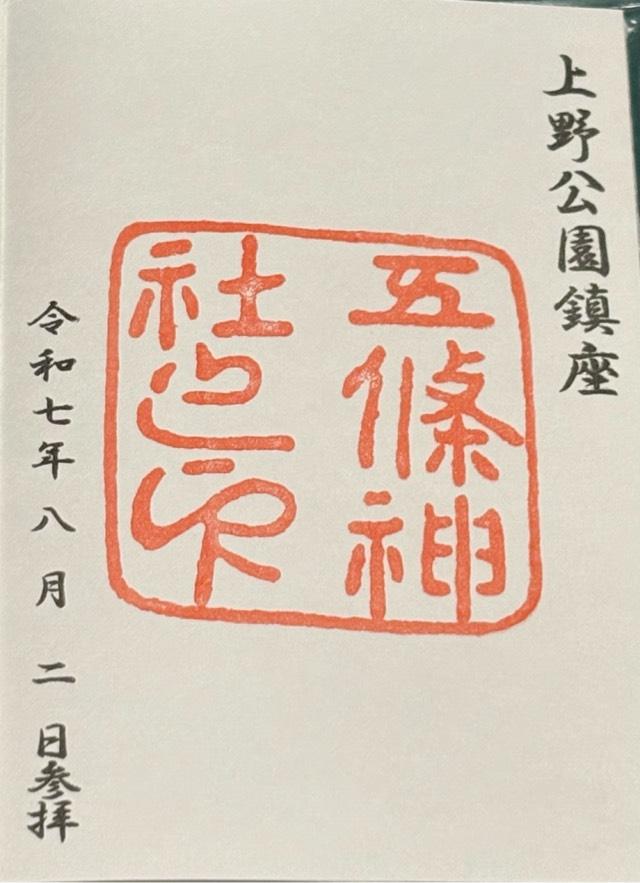 上野公園鎮座
五條神
社之印
令和七年八月二日参拝